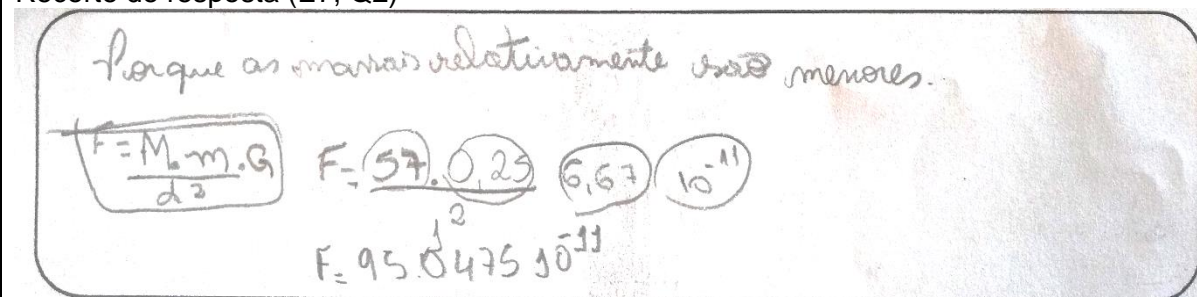 Recorte de resposta (E1, Q2)
Porque as massas relativamente são menores.
F = M.m.G F = 57.0,25 6,67 10^-11
d² 1²
F = 95.0475 10^-11